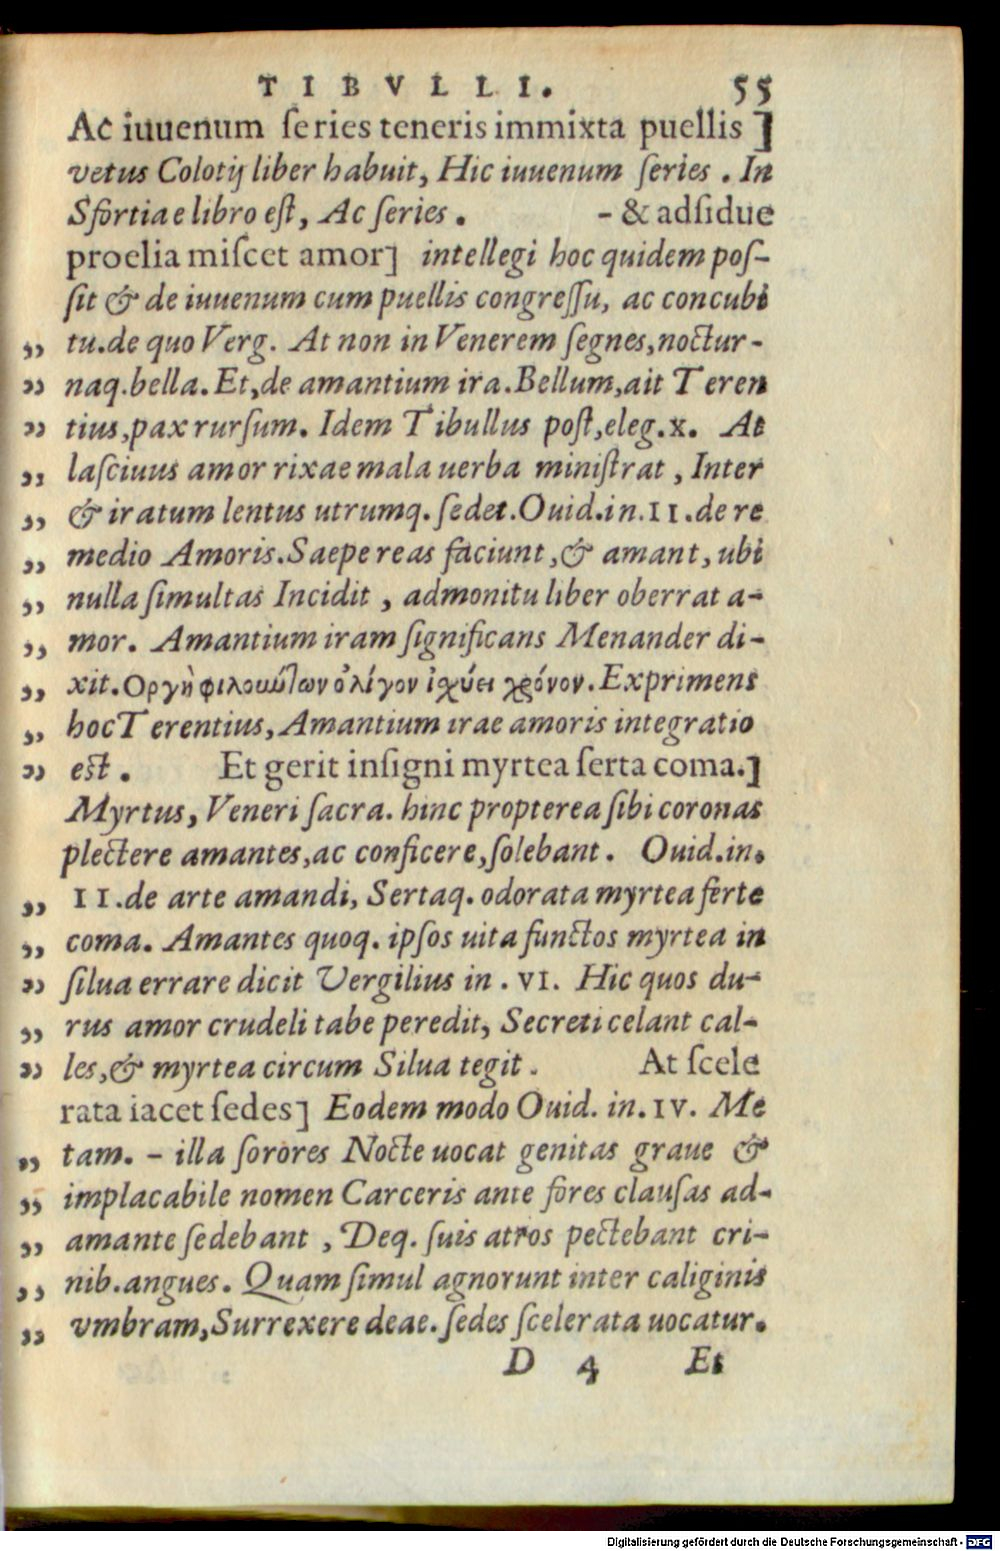 TIBVLLI. 55
Ac iuuenum ſeries teneris immixta puellis ]
vetus Colotij liber habuit, Hic iuuenum ſeries . In
Sfortiae libro eſt, Ac ſeries . - & adſidue
proelia miſcet amor] intellegi hoc quidem poſ-
ſit & de iuuenum cum puellis congreſſu, ac concubi
„ tu.de quo Verg. At non in Venerem ſegnes,noctur-
„ naq.bella. Et,de amantium ira.Bellum,ait Teren
„ tius,pax rurſum. Idem Tibullus poſt,eleg.x. At
„ laſciuus amor rixae mala uerba miniſtrat , Inter
„ & iratum lentus utrumq. ſedet.Ouid.in.II.de re
„ medio Amoris.Saepe reas faciunt ,& amant, ubi
„ nulla ſimultas Incidit , admonitu liber oberrat a-
„ mor. Amantium iram ſignificans Menander di-
„ xit.Οργὴ φιλουώτων ὀλίγον ἰχύει χρόνον.Exprimens
„ hoc Terentius, Amantium irae amoris integratio
„ eſt . Et gerit inſigni myrtea ſerta coma.]
Myrtus, Veneri ſacra. hinc propterea ſibi coronas
plectere amantes,ac conficere,ſolebant. Ouid.in.
„ II.de arte amandi, Sertaq. odorata myrtea ferte
„ coma. Amantes quoq. ipſos uita functos myrtea in
„ ſilua errare dicit Vergilius in . VI. Hic quos du-
„ rus amor crudeli tabe peredit, Secreti celant cal-
„ les,& myrtea circum Silua tegit . At ſcele
rata iacet ſedes] Eodem modo Ouid. in.IV. Me
„ tam. - illa ſorores Nocte uocat genitas graue &
„ implacabile nomen Carceris ante fores clauſas ad-
„ amante ſedebant , Deq. ſuis atros pectebant cri-
„ nib.angues. Quam ſimul agnorunt inter caliginis
„ vmbram,Surrexere deae.ſedes ſcelerata uocatur.
D 4 Et
Digitalisierung gefördert durch die Deutsche Forschungsgemeinschaft - DFG